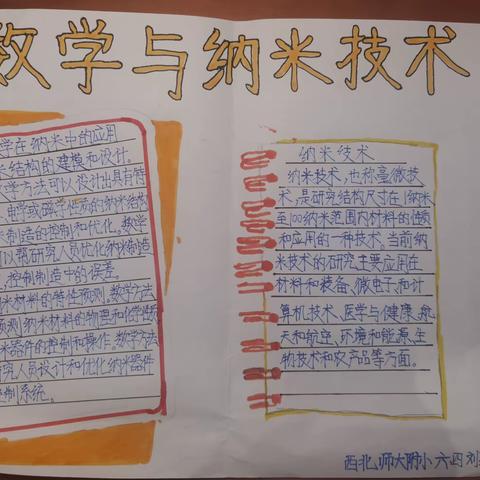 数学与纳米技术
学在纳米中的应用
结构的建模和设计。
学方法可以设计出具有特
电学或磁学性质的纳米结构
制造的控制和优化。数学
以帮研究人员优化纳米制造
控制制造中的误差。
米材料的特性预测。数学方法
预测纳米材料的物理和化学性质
米器件的控制和操作。数学方法
研究人员设计和优化纳米器件
控制系统。
纳米技术
纳米技术,也称毫微技
术,是研究结构尺寸在1纳米
至100纳米范围内材料的性质
和应用的一种技术。当前纳
米技术的研究主要应用在
材料和装备、微电子和计
算机技术、医学与健康、航
天和航空、环境和能源、生
物技术和农产品等方面。
西北师大附小六四刘